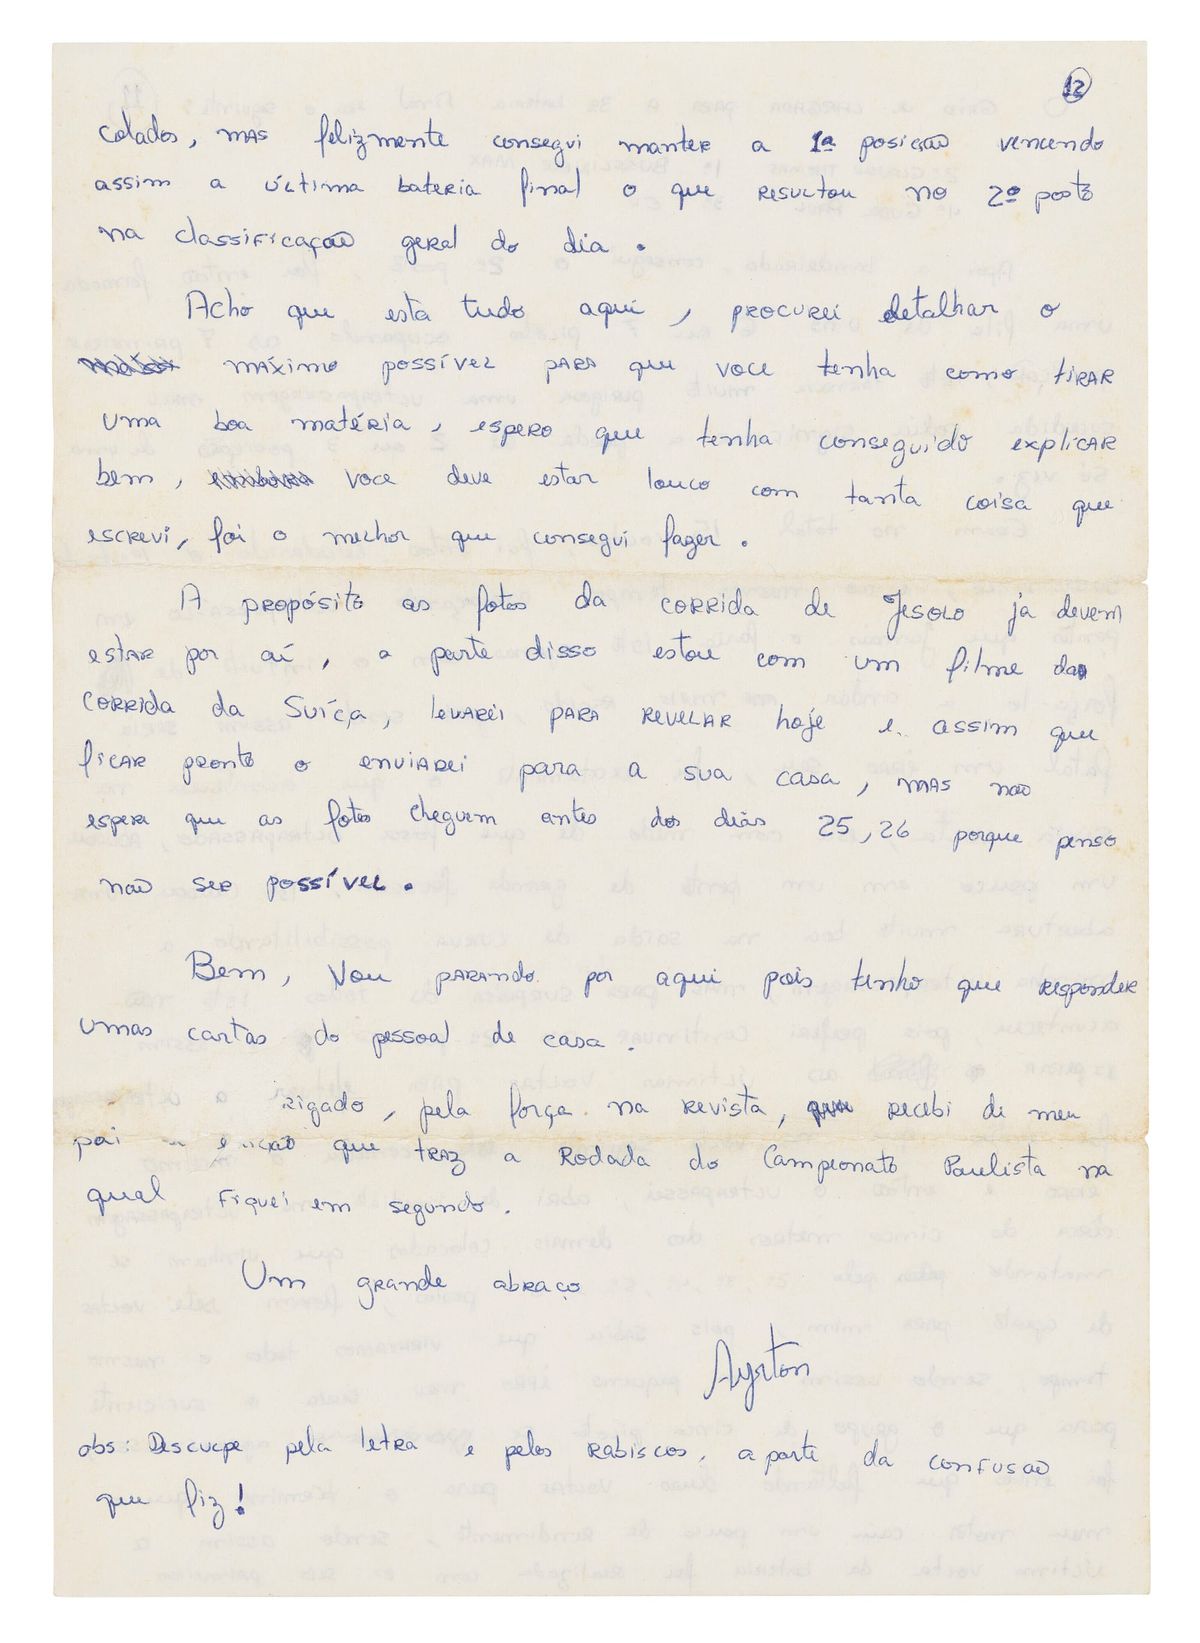 12
colados, mas felizmente consegui manter a 1ª posição vencendo
assim a última bateria final o que resultou no 2º posto
na classificação geral do dia.
Acho que esta tudo aqui, procurei detalhar o
máximo possível para que voce tenha como tirar
uma boa matéria, espero que tenha conseguido explicar
bem, voce deve estar louco com tanta coisa que
escrevi, foi o melhor que consegui fazer.
A propósito as fotos da corrida de Jesolo já devem
estar por aí, a parte disso estou com um filme da
corrida da Suíça, levarei para revelar hoje e assim que
ficar pronto o enviarei para a sua casa, mas não
espera que as fotos cheguem antes dos dias 25, 26 porque penso
não ser possível.
Bem, vou parando por aqui pois tenho que responder
umas cartas do pessoal de casa.
rigado, pela força na revista, recebi de meu
pai que traz a Rodada do Campeonato Paulista na
qual fiquei em segundo.
Um grande abraço
Ayrton
obs: Desculpe pela letra e pelos rabiscos, a parte da confusão
que fiz!